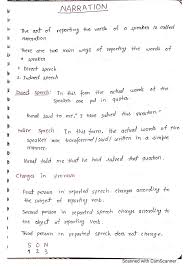 NARRATION
The art of reporting the words of a speaker is called
narration
There are two main ways of reporting the words of
a speaker
Direct speech
Indirect speech
Direct Speech : In this form the actual words of the
Speaker are put in quotes.
said to me," I have solved this question"
Indirect Speech : In this form, the actual words of the
speaker are transformed / said / written in a simple
manner
told me that he had solved that question.
Changes in
First person in reported speech change according
to the subject of reporting verb.
Second person in reported speech change according
to the object of reporting verb.
Third person in reported speech does not change.
S O N
1 2 3
Scanned with CamScanner